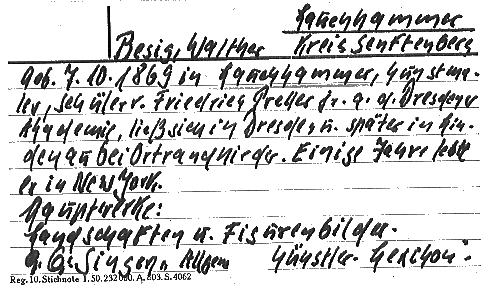 Lauchhammer
Besig, Walther Kreis Senftenberg
geb. 7.10.1869 in Lauchhammer, Kunstma-
ler, Schüler v. Friedrich Preller jr. a. d. Dresdener
Akademie, ließ sich in Dresden u. später in Lin-
denau bei Ortrand nieder. Einige Jahre lebte
er in New York.
Hauptwerke:
Landschaften u. Figurenbilder.
Singer, Allgem Künstler-Lexicon.
Reg. 10. Stichnote 1. 50. 232 000. A. 803. S. 4062